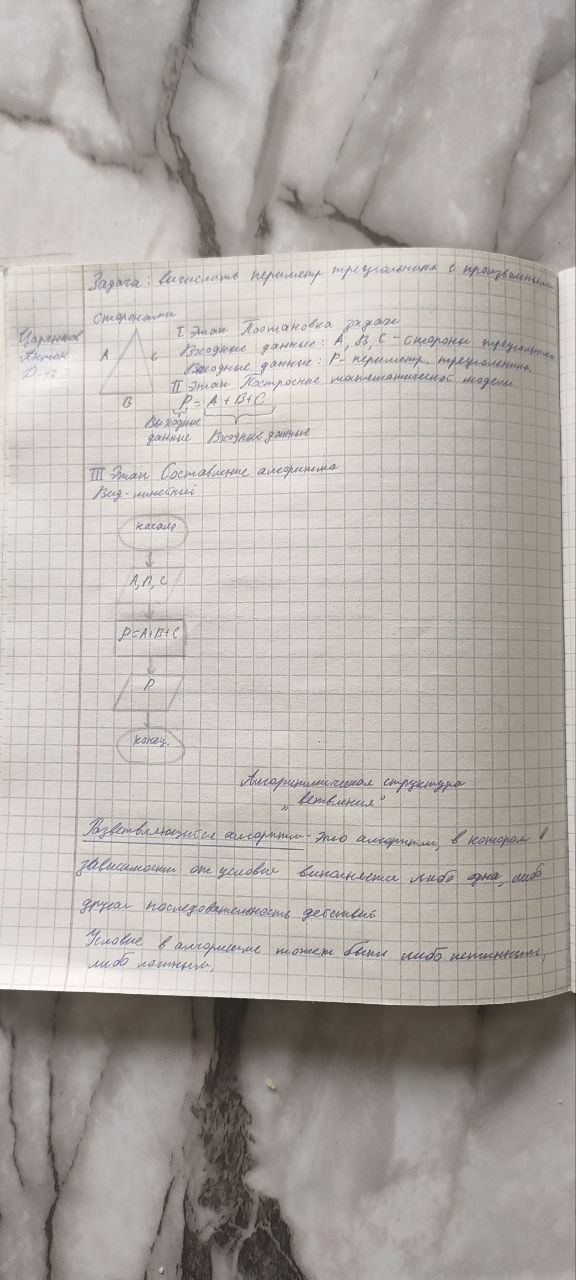 Задача: вычислить периметр треугольника с произвольными
сторонами
Антон
A
C
B
I Этап Постановка задачи
Входные данные: A, B, C - стороны треугольника
Выходные данные: P - периметр треугольника
II Этап Построение математической модели
P = A + B + C
Выходные
данные Входные данные
III Этап Составление алгоритма
Вид - линейный
начало
A, B, C
P = A+B+C
P
конец
Алгоритмическая структура
„ветвления"
Разветвляющийся алгоритм - это алгоритм, в котором в
зависимости от условия выполняется либо одна, либо
другая последовательность действий
Условие в алгоритме может быть либо истинным,
либо ложным.